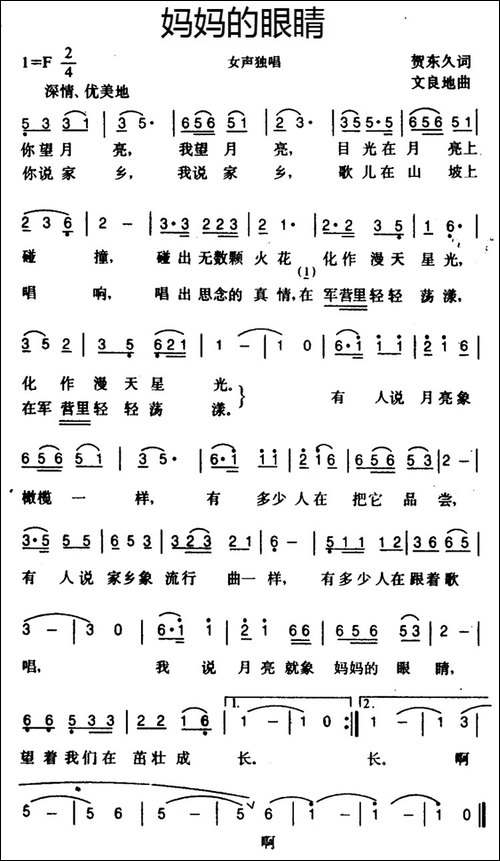 妈妈的眼睛
1=F 2/4
女声独唱
贺东久词
深情、优美地
文良地曲
5 3 3 1 | 3 5· | 6 5 6 5 1 | 3 5· | 3 5 5·5 | 6 5 6 5 1 |
你望月 亮, 我望月 亮, 目光在月 亮上
你说家 乡, 我说家 乡, 歌儿在山 坡上
2 3 6 | 2 – | 3·3 2 2 3 | 2 1· | 2·2 3 5 | 1 6· |
碰 撞, 碰出无数颗 火花 化作漫天星光,
(1)
唱 响, 唱出思念的真情,在 军营里轻轻荡漾,
3 5 2 | 3 5 5 | 6 2 1 | 1 – | 1 0 | 6·1 1 1 | 2 1 6 |
化 作 漫天星 光。
在军 营里轻轻荡 漾。
有 人说月亮象
6 5 6 5 1 | 3 5· | 6·1 1 1 | 2 1 6 | 6 5 6 5 3 | 2 – |
橄榄一 样, 有 多少人在 把它品尝,
3·5 5 5 | 6 5 3 | 3 2 3 2 1 | 6 – | 5 1 1 1 2 | 3 6 6 5 |
有 人说家乡象流行曲一样, 有多少人在跟着歌
3 – | 3 0 | 6·1 1 | 2 1 6 6 | 5 6 5 6 5 3 | 2 – |
唱, 我 说月亮就象 妈妈的眼 睛,
6 6 5 3 3 | 2 2 1 6 | 1. 1 – | 1 0 :‖ 2. 1 – | 1 3 |
望着我们在 茁壮成 长。 长。 啊
5 – | 5 6 | 5 – | 5 6 | 1 – | 1 – | 1 – | 1 0 ‖
啊